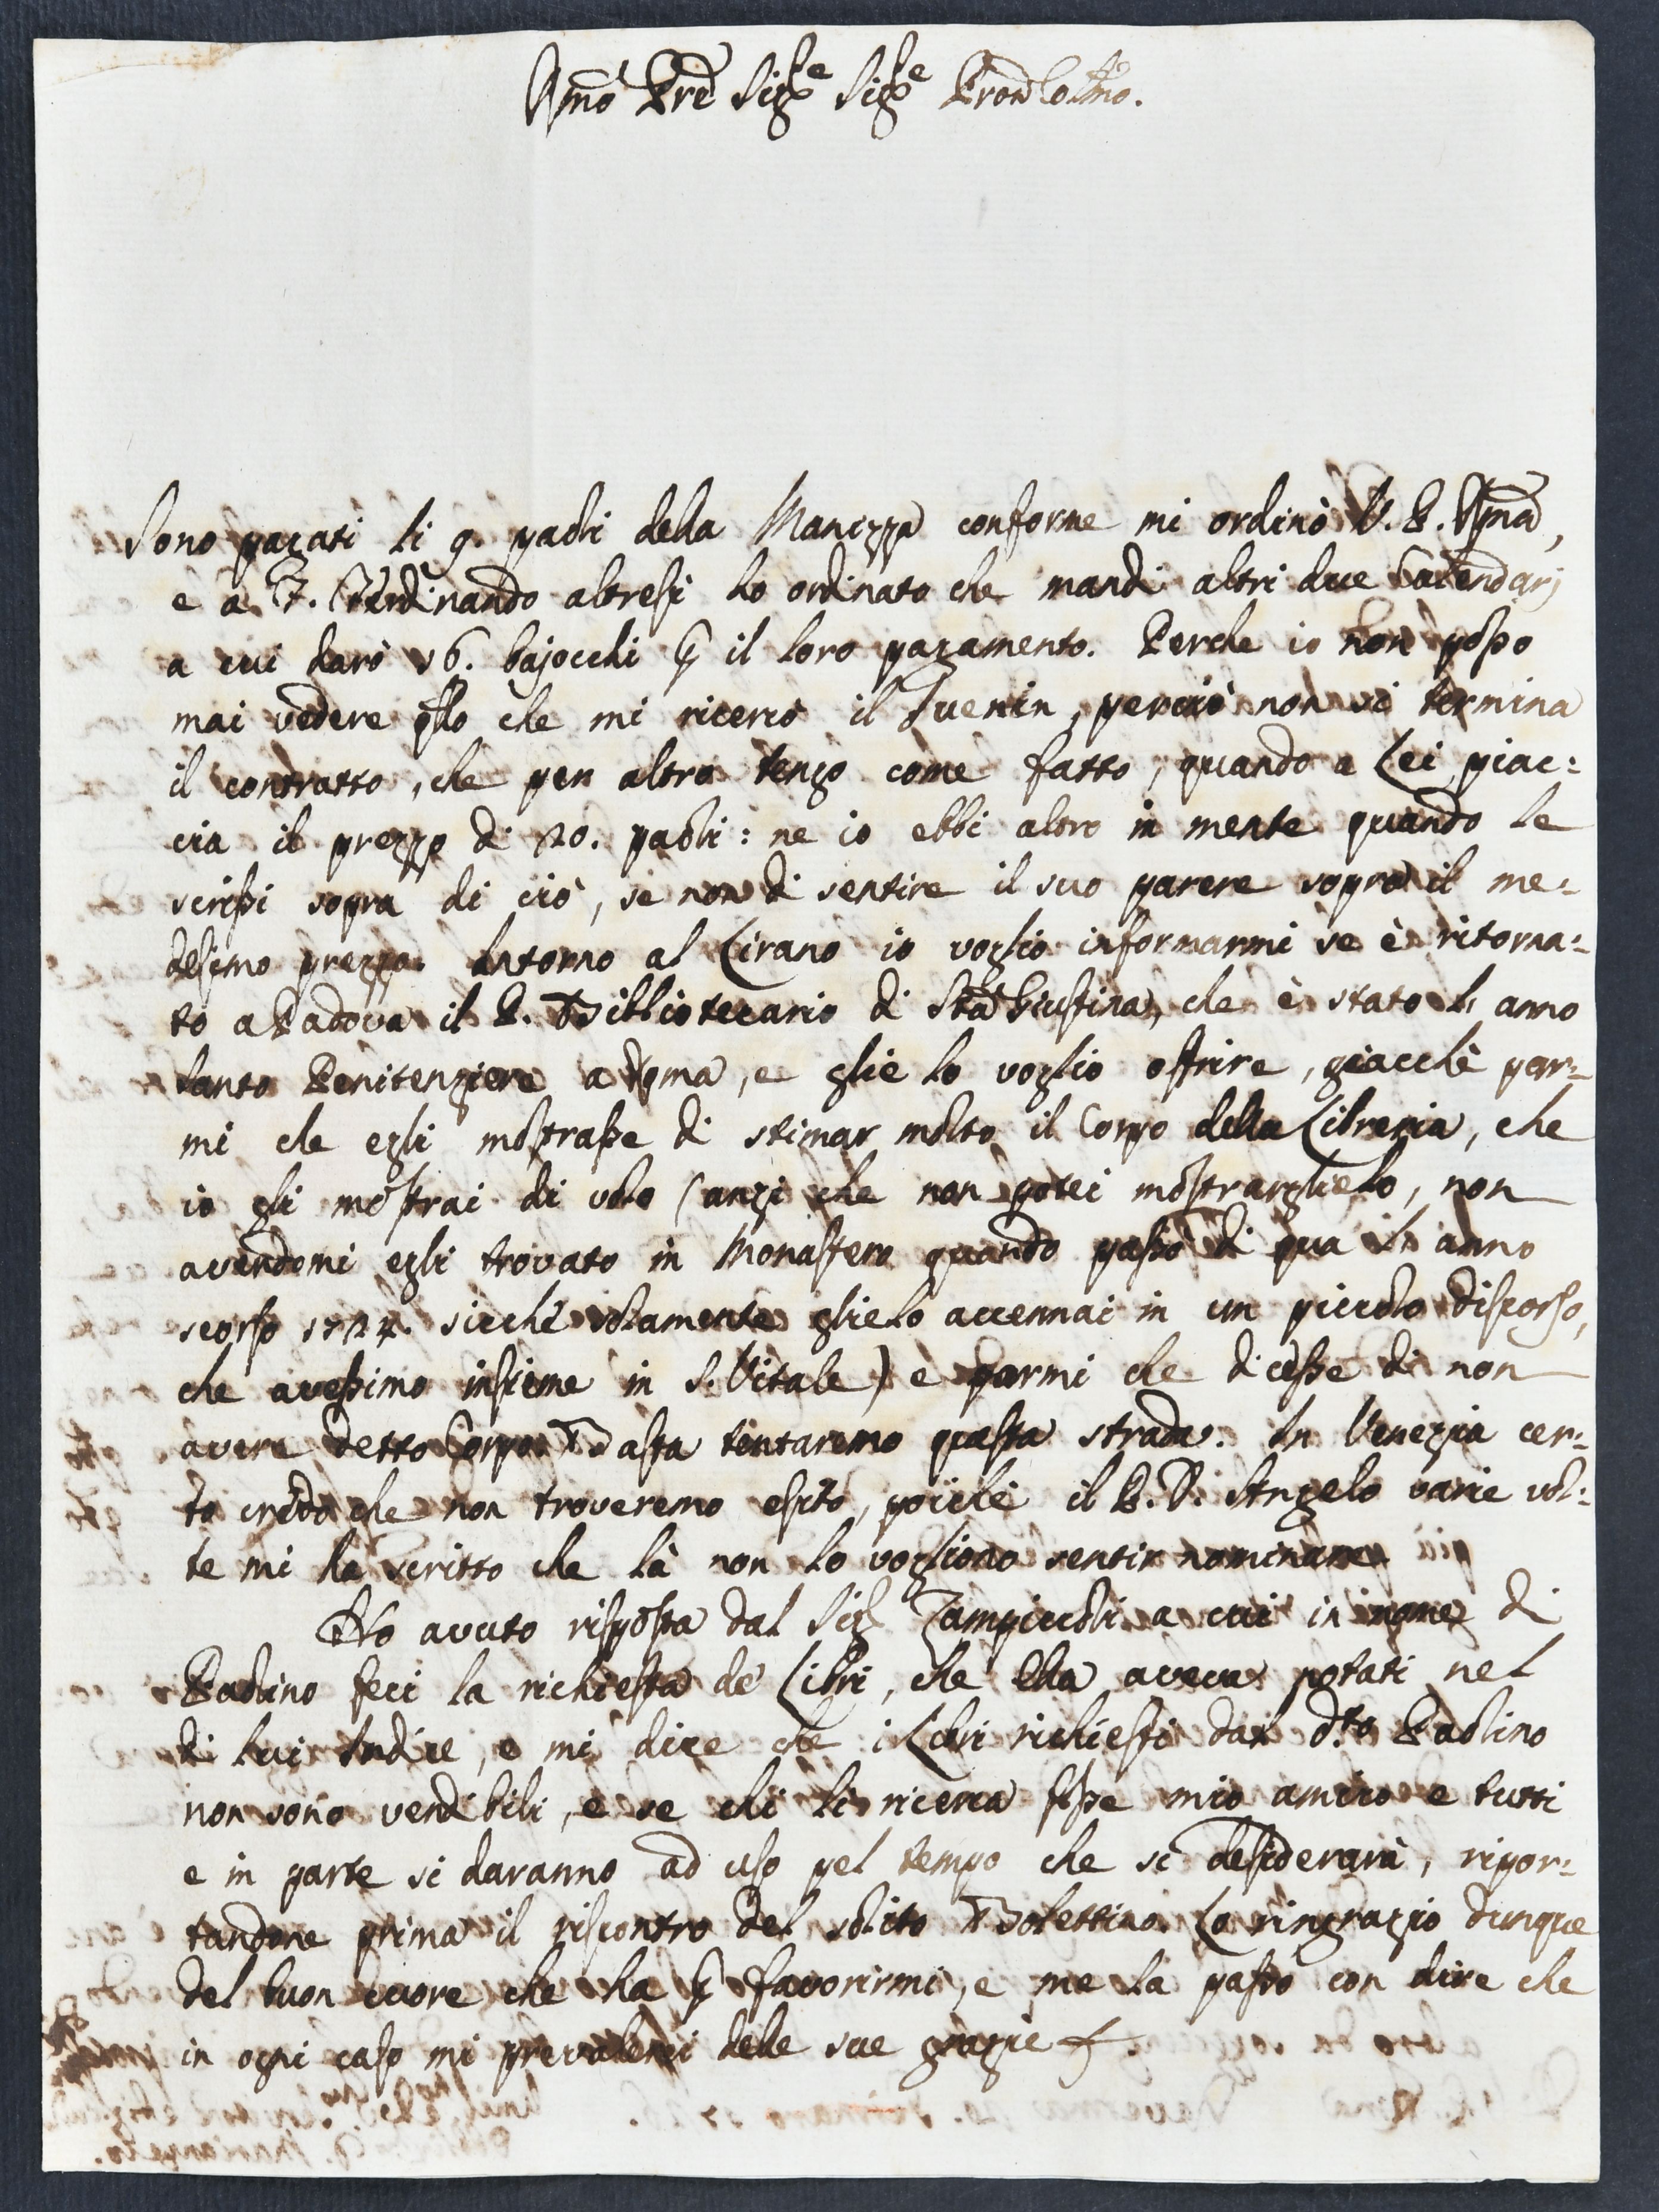 Rmo Pre Sigre Sigre Pron Colmo.
Sono pagati li 9. paoli della Manizza conforme mi ordinò V. P. Rma,
e a F. Ferdinando altresi ho ordinato che mandi altri due Calendarj
a cui darò 16. bajocchi p il loro pagamento. Perche io non posso
mai vedere qllo che mi ricercò il Juenin, perciò non si termina
il contratto, che per altro tengo come fatto, quando a Lei piac:
cia il prezzo di 20. paoli: ne io ebbi altro in mente quando le
scrissi sopra di ciò, se non di sentire il suo parere sopra il me:
desimo prezzo. Intorno al Lirano io voglio informarmi se è ritorna:
to a Padova il P. Bibliotecario di Sta Giustina, che è stato l' anno
santo Penitenziere a Roma, e glie lo voglio offrire, giacchè par:
mi che egli mostrasse di stimar molto il Corpo della Libreria, che
io gli mostrai di volo (anzi che non potei mostrarglielo, non
avendomi egli trovato in Monastero quando passò di qua l' anno
scorso 1724. sicchè solamente glielo accennai in un piccolo discorso,
che avessimo insieme in S. Vitale) e parmi che dicesse di non
avere detto Corpo. Basta tentaremo questa strada. In Venezia cer:
to credo che non troveremo esito, poichè il P. D. Angelo varie vol:
te mi ha scritto che là non lo vogliono sentir nominare.
Ho avuto risposta dal Sig Zampiccoli a cui in nome di
Paolino feci la richiesta de' Libri, che Ella aveva notati nel
di lui Indice, e mi dice che i Libri richiesti dal d.to Paolino
non sono vendibili, e se chi li ricerca fosse mio amico e tutti
e in parte si daranno ad uso pel tempo che si desiderarà, ripor:
tandone prima il riscontro del solito Bolettino. La ringrazio dunque
del buon cuore che ha p favorirmi, e me la passo con dire che
in ogni caso mi prevalerei delle sue grazie